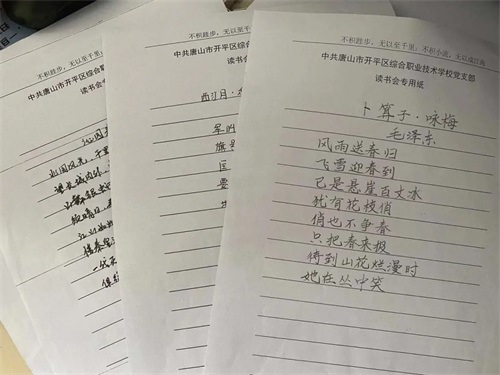 不积跬步，无以至千里；
中共唐山市开平区综
读书会
沁园
北国风光，千里
不积跬步，无以至千里
中共唐山市开平区综合职
读书会
西江月·
军叫
旗号
匡
要
不积跬步，无以至千里；不积小流，无以成江海
中共唐山市开平区综合职业技术学校党支部
读书会专用纸
卜算子·咏梅
毛泽东
风雨送春归
飞雪迎春到
已是悬崖百丈冰
犹有花枝俏
俏也不争春
只把春来报
待到山花烂漫时
她在丛中笑